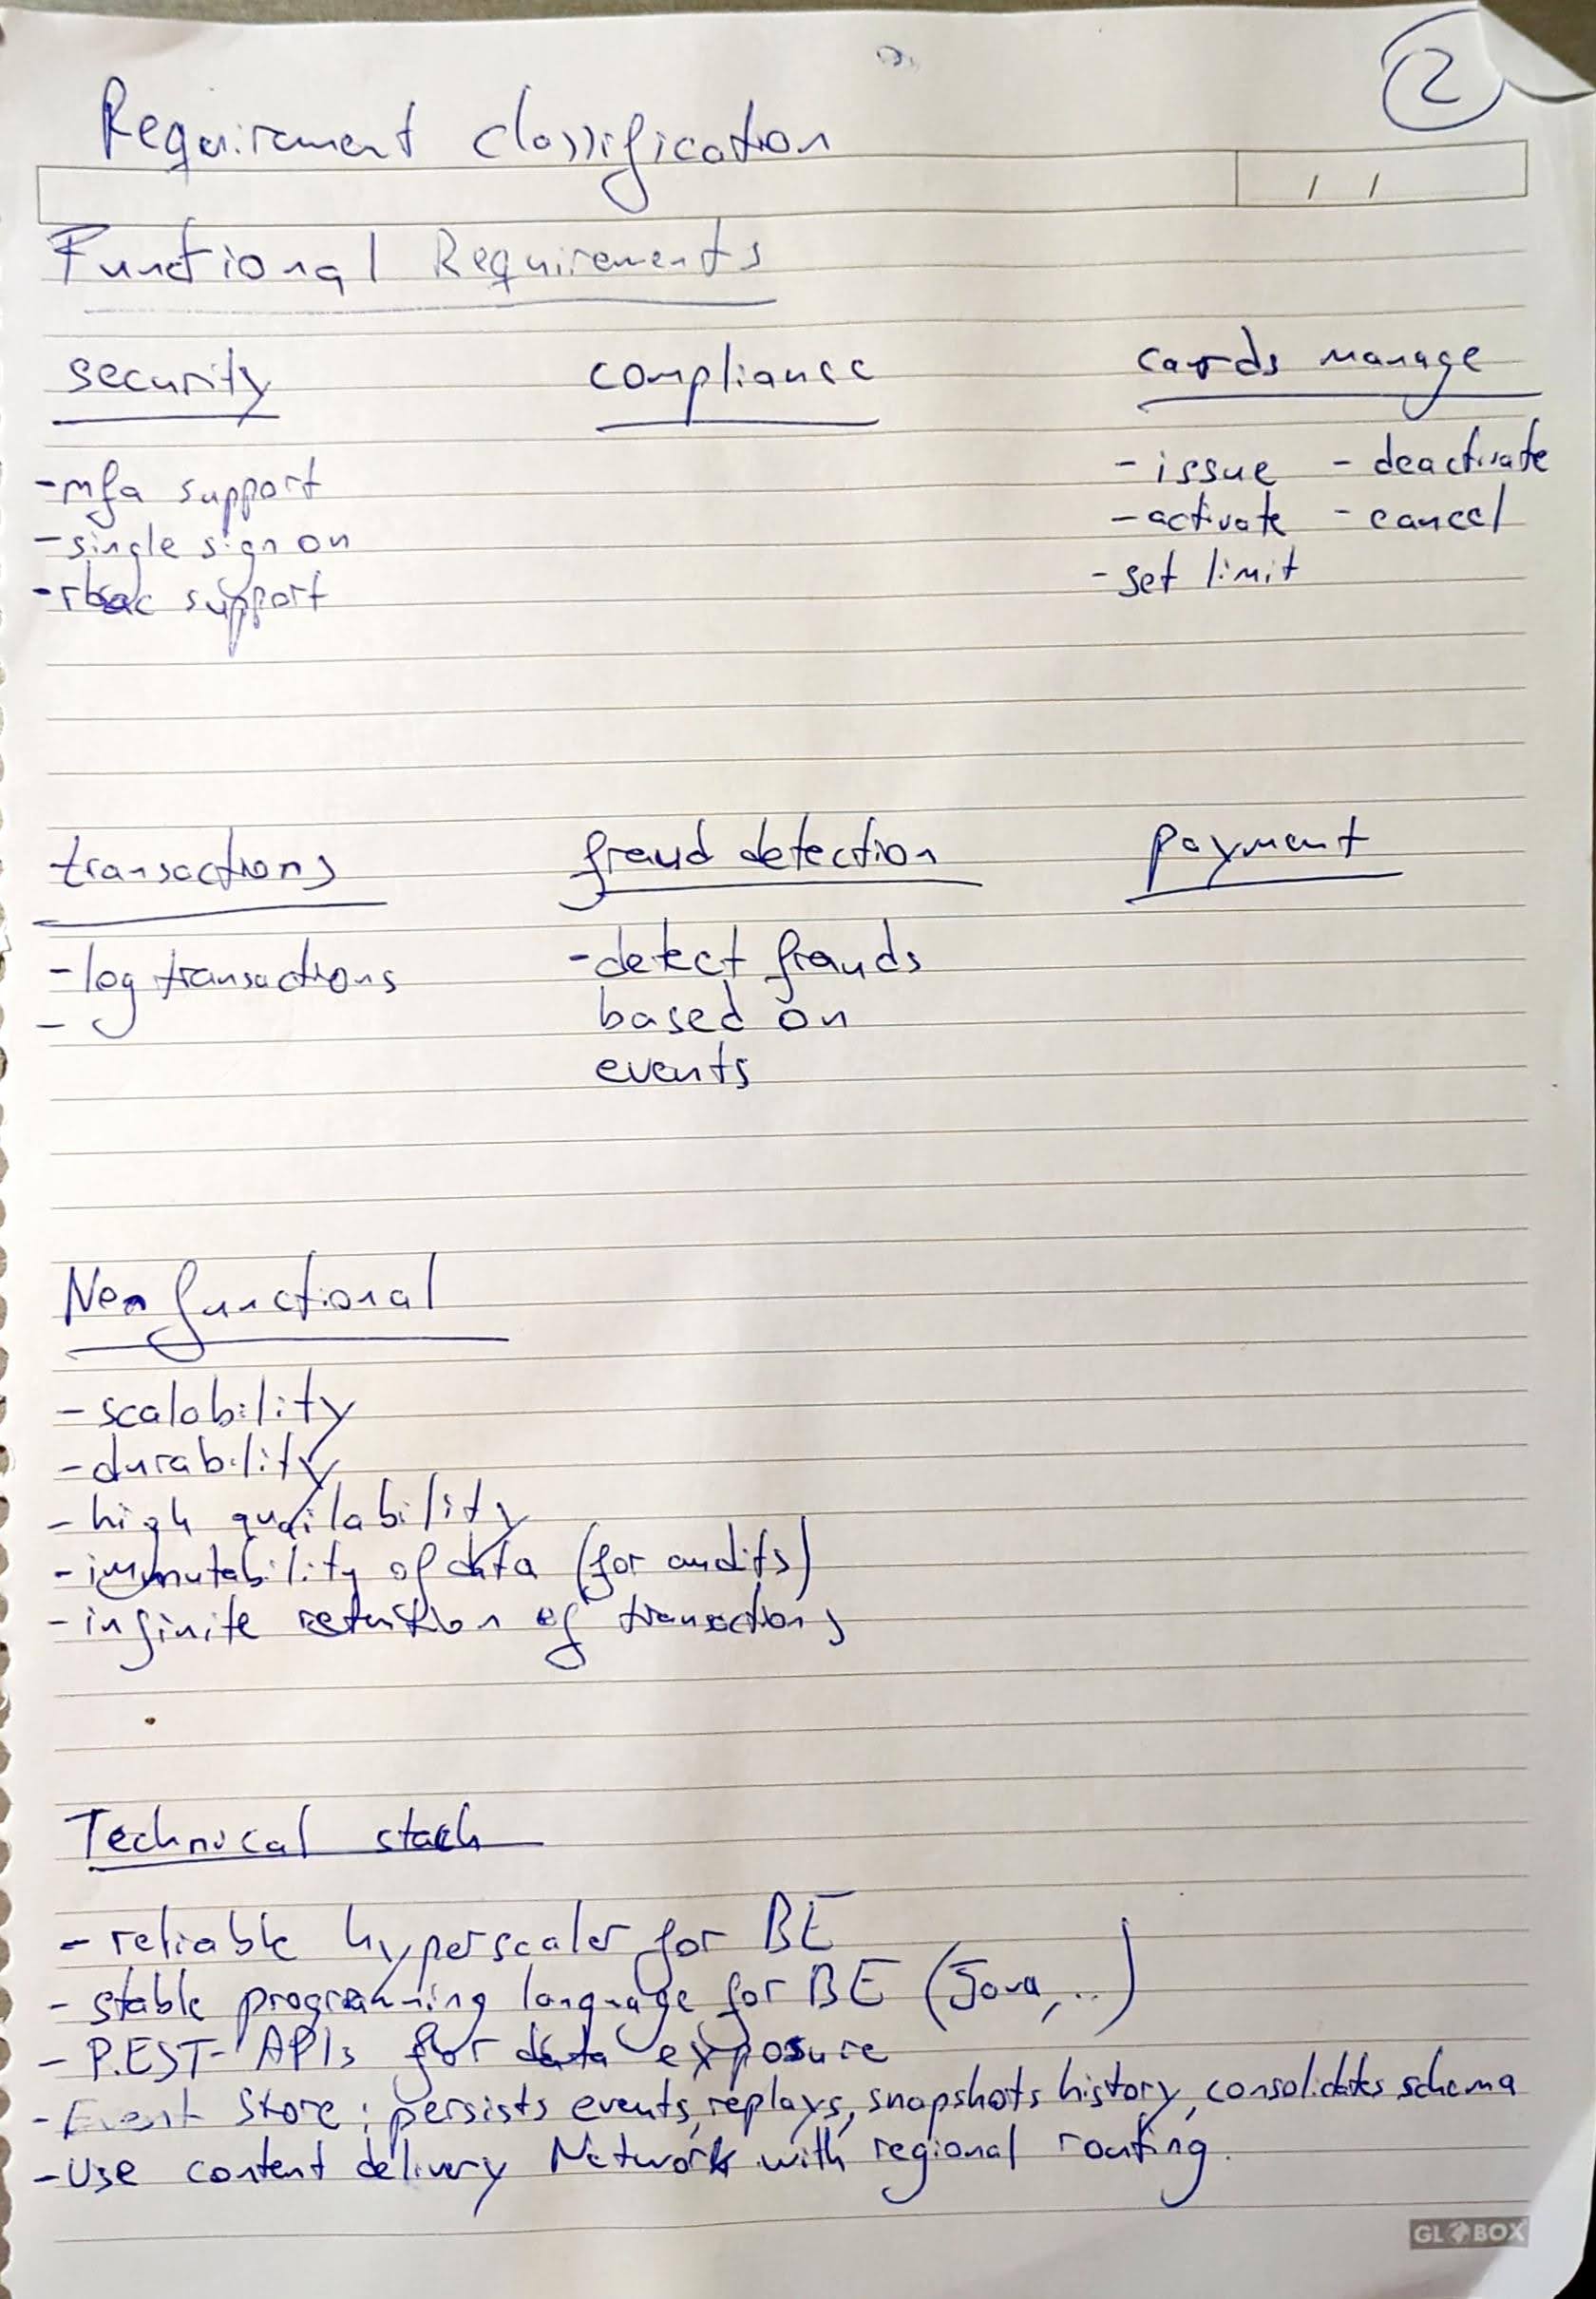 2
Requirement classification
/ /
Functional Requirements
security compliance cards manage
- mfa support
- single sign on
- rbac support
- issue - deactivate
- activate - cancel
- set limit
transactions fraud detection payment
- log transactions
-
- detect frauds
based on
events
Non functional
- scalability
- durability
- high availability
- immutability of data (for audits)
- infinite retention of transactions
Technical stack
- reliable hyperscaler for BE
- stable programming language for BE (Java, ..)
- REST APIs for data exposure
- Event Store: persists events, replays, snapshots history, consolidates schema
- Use content delivery Network with regional routing.
GLOBOX